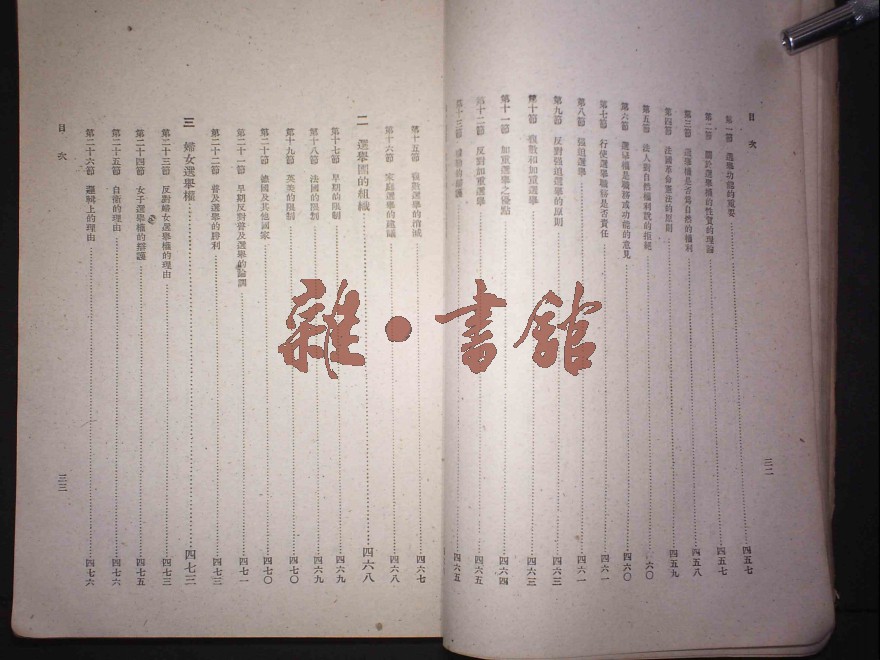 目次
第一節 選舉功能的重要 四五七
第二節 關於選舉權的性質的理論 四五七
第三節 選舉權是否為自然的權利 四五八
第四節 法國革命憲法的原則 四五九
第五節 法人對自然權利說的拒絕 六〇
第六節 選舉權是職務或功能的意見 四六〇
第七節 行使選舉職務是否責任 四六一
第八節 强迫選舉 四六一
第九節 反對强迫選舉的原則 四六三
第十節 複數和加重選舉 四六三
第十一節 加重選舉之優點 四六四
第十二節 反對加重選舉 四六五
第十三節 四六五
三二
第十五節 複數選舉的消滅 四六七
第十六節 家庭選舉的建議 四六八
二 選舉團的組織 四六八
第十七節 早期的限制 四六九
第十八節 法國的限制 四六九
第十九節 英美的限制 四七〇
第二十節 德國及其他國家 四七〇
第二十一節 早期反對普及選舉的論調 四七一
第二十二節 普及選舉的勝利 四七三
三 婦女選舉權 四七三
第二十三節 反對婦女選舉權的理由 四七三
第二十四節 女子選舉權的辯護 四七五
第二十五節 自衛的理由 四七六
第二十六節 邏輯上的理由 四七六
目次
三三
雜·書館